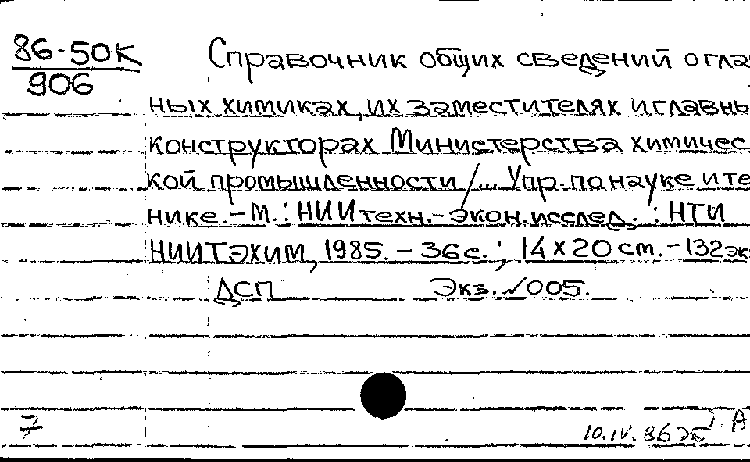 86-50К
906
Справочник общих сведений о глав
ных химиках, их заместителях и главны
конструкторах Министерства химичес
кой промышленности / ... Упр. по науке и те
нике. - М. : НИИ техн.-экон. исслед. : НТИ
НИИТЭХИМ, 1985. - 36 с. ; 14 х 20 см. - 132 эк
ДСП Экз. ✓005.
7
10.IV.86 А